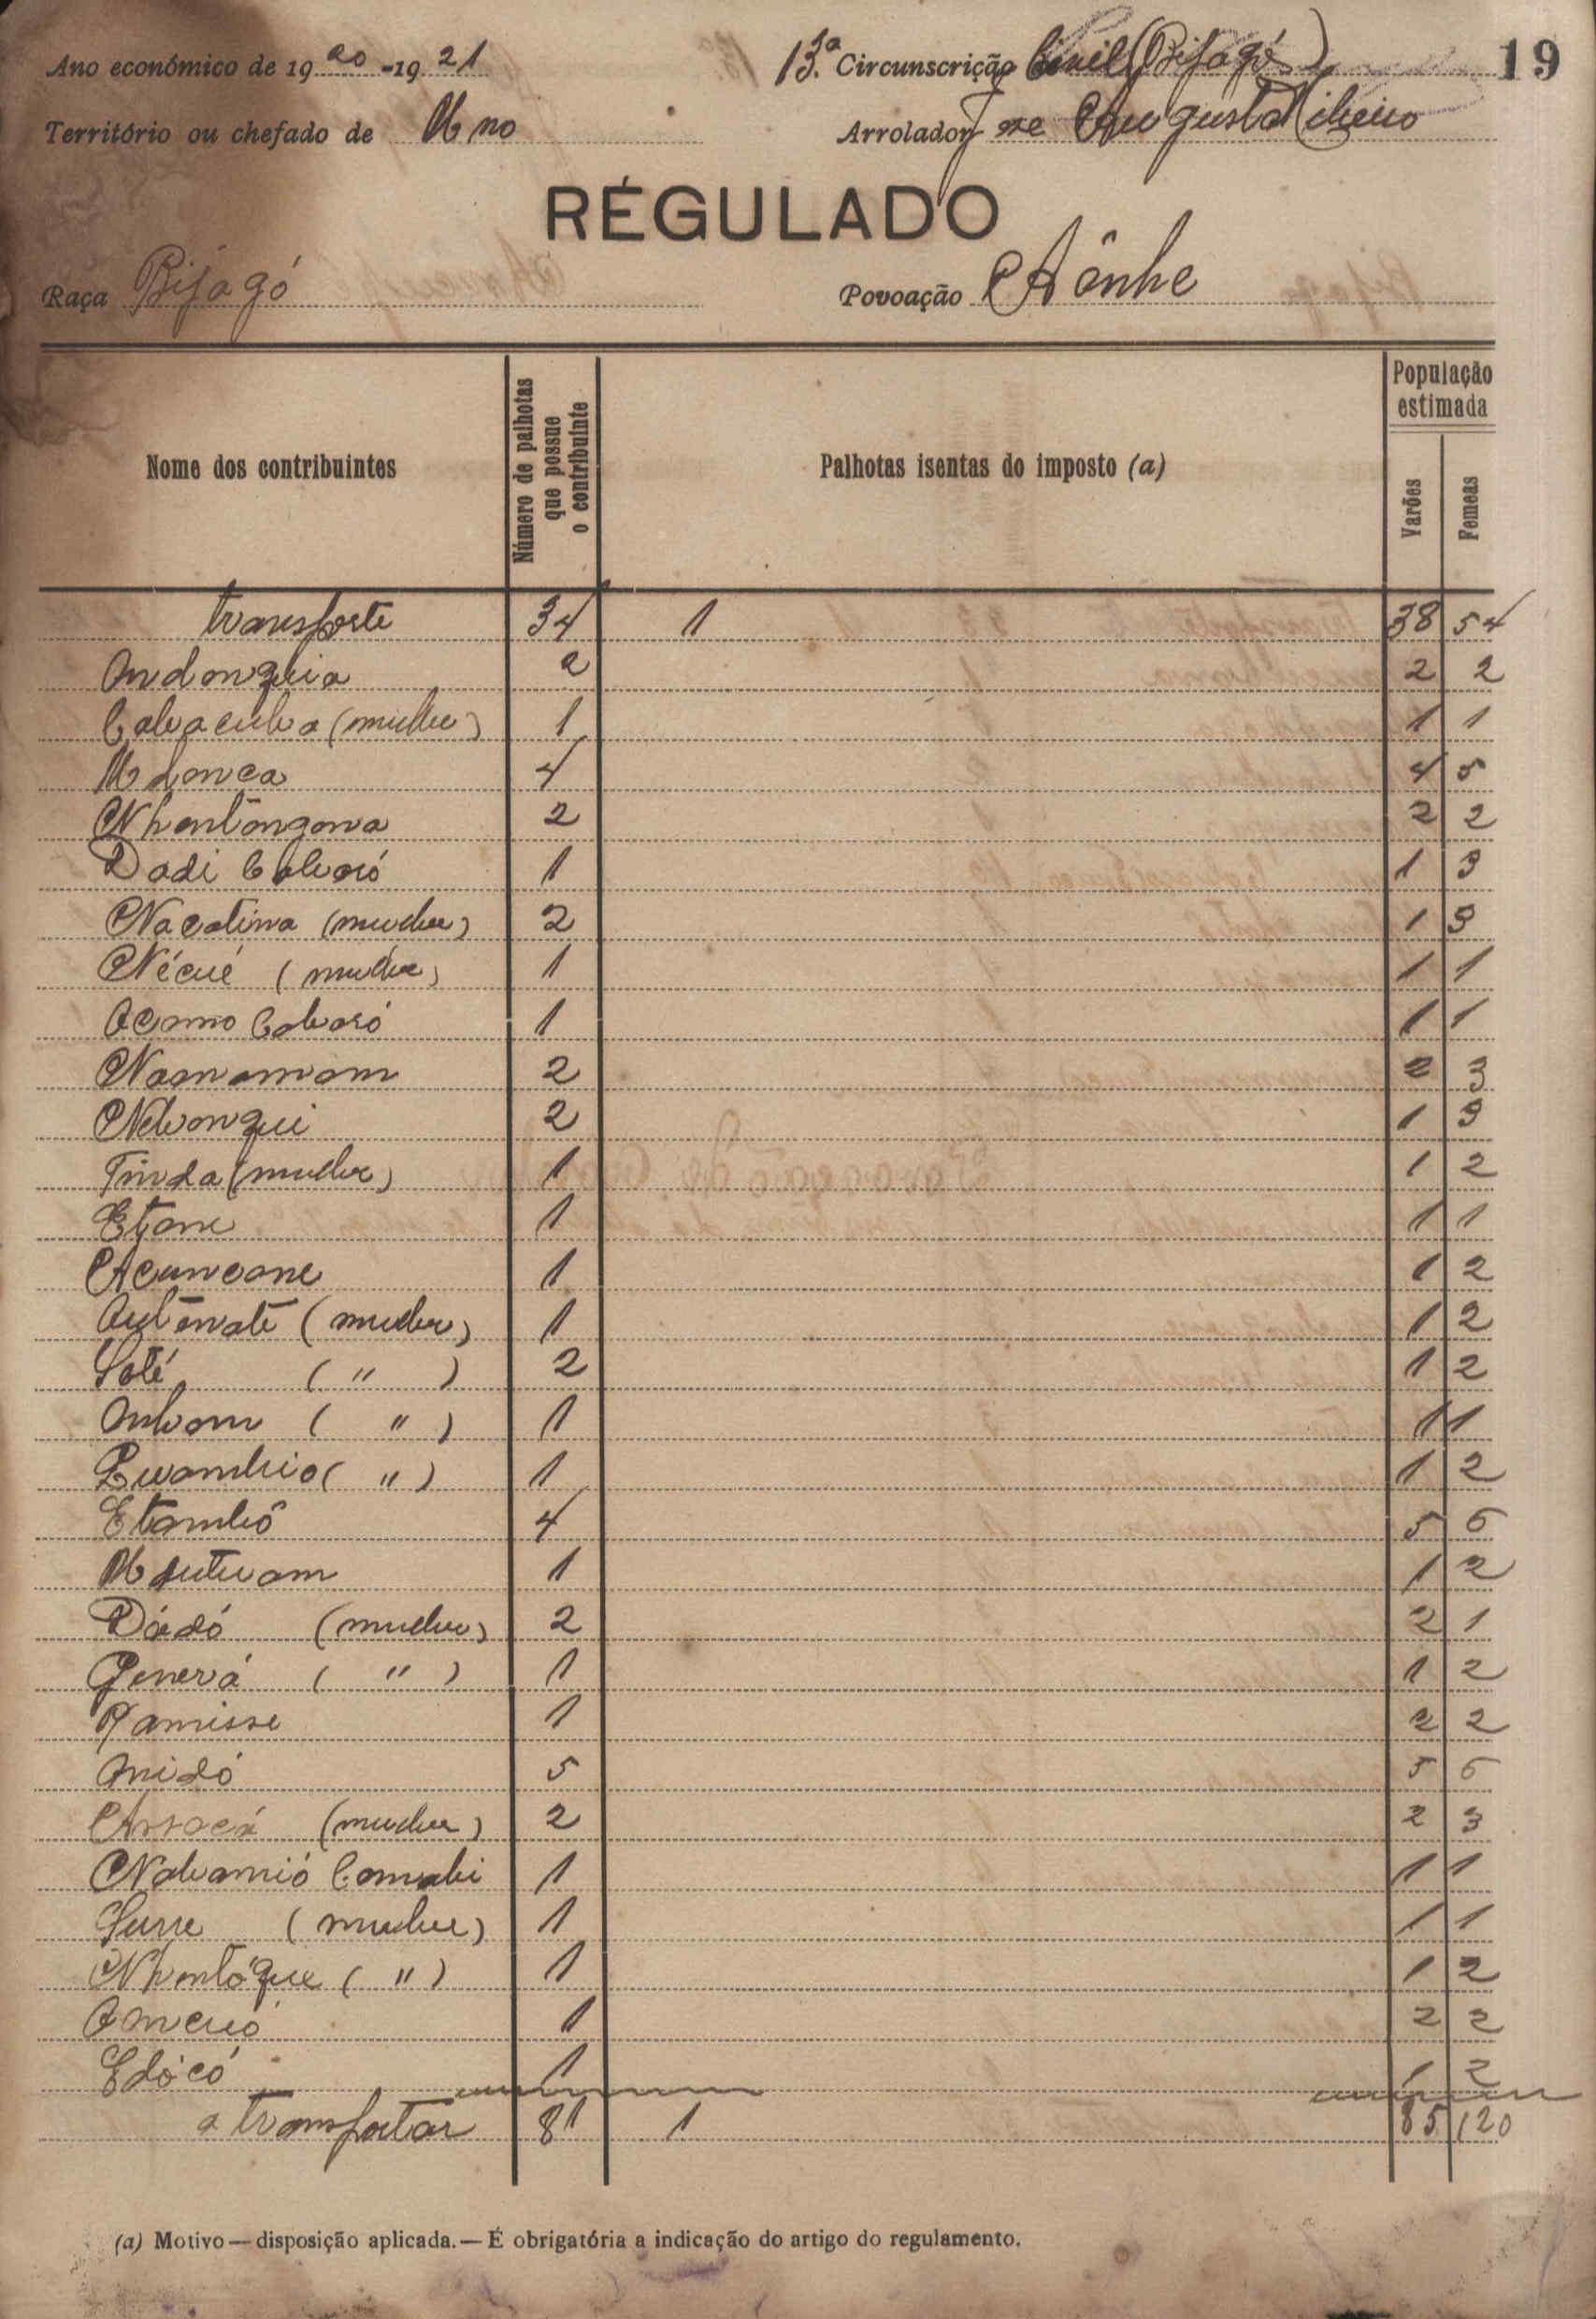 Ano económico de 1920-1921 13.ª Circunscrição Civil (Bijagós) 19
Território ou chefado de Uno Arrolador José Augusto Ribeiro
RÉGULADO
Raça Bijagó Povoação Aônhe
Nome dos contribuintes Número de palhotas que possue o contribuinte Palhotas isentas do imposto (a) População estimada Varões Femeas
transporte 34 1 38 54
Andonquia 2 2 2
(mulher) 1 1 1
4 4 5
Nhontongona 2 2 2
Dadi 1 1 3
Nacatina (mulher) 2 1 3
Nécué (mulher) 1 1 1
Acamo 1 1 1
Naanamam 2 2 3
2 1 3
Tinda (mulher) 1 1 2
Etane 1 1 1
Acuncane 1 1 2
(mulher) 1 1 2
Soté ( " ) 2 1 2
( " ) 1 1 1
( " ) 1 1 2
Etambó 4 5 6
1 1 2
Dádó (mulher) 2 2 1
( " ) 1 1 2
1 2 2
Onidó 5 5 6
(mulher) 2 2 3
1 1 1
(mulher) 1 1 1
Nhontóque ( " ) 1 1 2
Oncuó 1 2 2
Edócó 1 1 2
a transportar 81 1 85 120
(a) Motivo — disposição aplicada. — É obrigatória a indicação do artigo do regulamento.